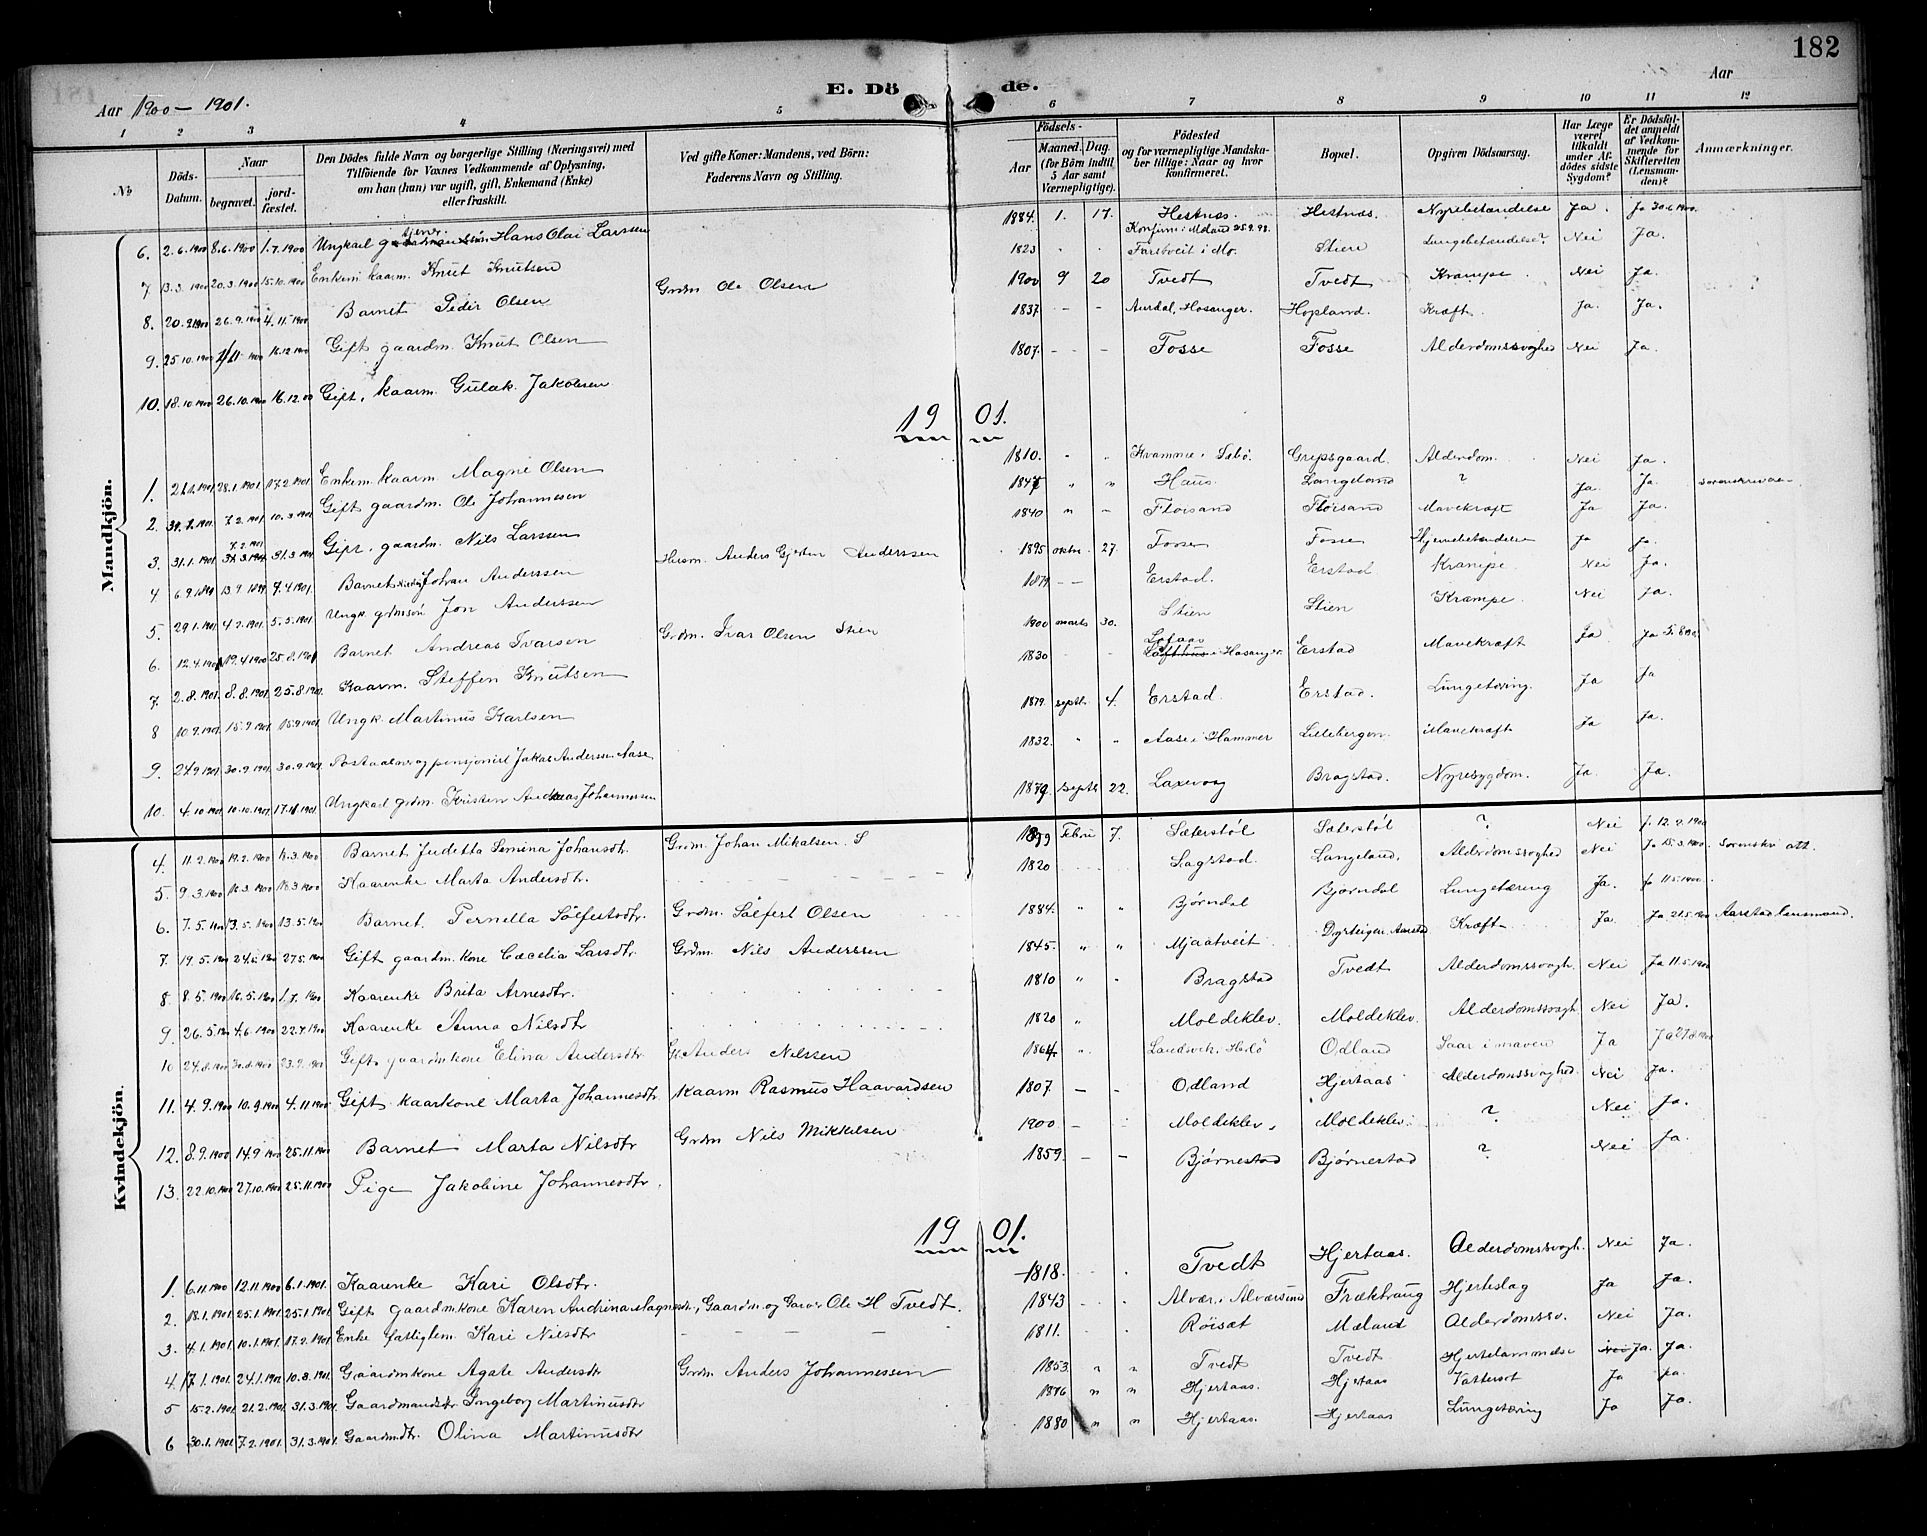 182
Aar 1900 – 1901.
E. Döde.
Aar
1 2 3 4 5 6 7 8 9 10 11 12
No
Döds-Datum.
Naar
begravet.
jordfæstet.
Den Dödes fulde Navn og borgerlige Stilling (Næringsvei) med Tilföiende for Voxnes Vedkommende af Oplysning, om han (hun) var ugift, gift, Enkemand (Enke) eller fraskilt.
Ved gifte Koner: Mandens, ved Börn: Faderens Navn og Stilling.
Födsels-
Aar
Maaned. Dag.
(for Börn indtil 5 Aar samt Værnepligtige).
Födested
og for værnepligtige Mandskaber tillige: Naar og hvor konfirmeret.
Bopæl.
Opgiven Dödsaarsag.
Har Læge været tilkaldt under Afdödes sidste Sygdom?
Er Dödsfaldet anmeldt af Vedkommende for Skifteretten (Lensmanden)?
Anmærkninger.
Mandkjön.
6. 2.6.1900 8.6.1900 1.7.1900 Ungkarl Hans Olai Larssen 1884. 1. 17. Hestnæs. Konfirm. i Meland 25.9.98. Hestnæs. Nyrebetændelse Ja. Ja 30.6.1900.
7 13.3.1900 20.3.1900 15.10.1900 Enkem. kaarm. Knut Knutsen 1823 Farstveit i Mo. Stien Lungebetændelse? Nei Ja.
8. 20.9.1900 26.9.1900 4.11.1900 Barnet Peder Olsen Grdm Ole Olsen 1900 9 20 Tvedt Tvedt Krampe. Nei Ja.
9. 25.10.1900 1900 16.12.1900 Gift gaardm. Knut Olsen 1837 - - Aurdal, Hosanger. Hopland. Kræft. Ja. Ja.
10. 18.10.1900 26.10.1900 16.12.00 Gift, kaarm. Gulak Jakobsen 1807. - - Fosse Fosse Alderdomssvaghed Nei Ja.
1901.
1. 21.1.1901 28.1.1901 17.2.1901 Enkem. kaarm Magne Olsen 1810. Kvamme i Sæbø. Gripsgaard. Alderdom. Nei Ja.
2. 7.2.1901 10.3.1901 Gift gaardm. Ole Johannesen Haus. Langeland ? Ja. Ja.
3. 31.1.1901 7.2.1901 31.3.1901 Gift. gaardm. Nils Larssen 1840 Floisand Floisand Mavekræft Ja Ja.
4 Barnet Johan Anderssen Husm. Anders Gjerten Anderssen 1895 oktbr. 27. Fosse Fosse Hjernebetændelse Ja Ja.
5. 29.1.1901 4.2.1901 5.5.1901 Ungk. grdmsön Jon Anderssen 1879 - - Erstad. Erstad Krampe. Nei Ja.
6. 12.4.1901 19.4.1900 25.8.1901 Barnet Andreas Ivarsen Grdm. Ivar Olsen Stien 1900 marts 30. Stien Stien Krampe. Nei Ja.
7. 2.8.1901. 8.8.1901. 25.8.1901. Kaarm. Steffen Knutsen 1830 Lofaas Lofthus i Hosanger Erstad Mavekræft Ja
8 10.9.1901 15.9.1901 15.9.1901. Ungk. Martinus Karlsen 1879. septbr. 4. Erstad. Erstad. Lungetæring. Ja Ja
9. 24.9.1901 30.9.1901 30.9.1901 Jakob Andersen Aase 1832. Aase i Hammer Lillebergen. Mavekræft Ja Ja.
10. 4.10.1901 10.10.1901 17.11.1901. Ungkarl grdm. Kristen Andreas Johannessen 1879 septbr 22. Laxevog Bragstad. Nyresygdom. Ja. Ja.
Kvindekjön.
4. 11.2.1900 19.2.1900 11.3.1900 Barnet Judetta Semina Johansdtr. Grdm. Johan Mikalsen. S 1899 Febru 7. Sæterstöl Sæterstöl ? Nei 12.2.1900
5 9.3.1900 18.3.1900 18.3.1900 Kaarenke Marta Andersdtr. 1820 Sagstad. Langeland, Alderdomssvaghed Nei Ja 15.3.1900. Sorenskr. att.
6. 7.5.1900 13.5.1900 13.5.1900 Barnet. Pernella Sölfestsdtr. Grdm. Sölfest Olsen 1884. Bjørndal Bjørndal Lungetæring Ja. Ja 11.5.1900.
7. 19.5.1900 24.5.1900 27.5.1900 Gift gaardm. kone Cæcelia Larsdtr Grdm. Nils Anderssen 1845. Mjaatveit Dyrteigen. Aarstad Kræft Ja Ja 21.5.1900 Aarstad lensmand.
8. 8.5.1900 16.5.1900 1.7.1900 Kaarenke Brita Arnesdtr. 1810 Bragstad Tvedt Alderdomssvagh. Nei Ja 11.5.1900
9 26.5.1900 4.6.1900 22.7.1900 Kaarenke Anna Nilsdtr 1820 Moldeklev. Moldeklev. Alderdomssvagh Nei Ja.
10 24.8.1900 30.8.1900 23.9.1900 Gift gaardmkone Elina Andersdtr. G. Anders Nilssen 1864. Landsvik. Hedö Odland Saar i maven Ja Ja 27.8.1900
11. 4.9.1900 10.9.1900 4.11.1900 Gift kaarkone Marta Johannesdtr. Kaarm Rasmus Haavardsen 1807 - Odland Hjertaas Alderdomssvaghed. Nei Ja.
12. 8.9.1900 14.9.1900 25.11.1900 Barnet Marta Nilsdtr Grdm Nils Mikkelsen 1900 - Moldeklev, Moldeklev. ? Nei Ja.
13. 22.10.1900 27.10.1900 25.11.1900 Pige Jakobine Johannesdtr. 1859. - - Bjørnestad Bjørnestad ? Nei Ja.
1901.
1. 6.11.1900 12.11.1900 6.1.1901. Kaarenke Kari Olsdtr. 1818. Tvedt Hjertaas. Alderdomssvagh. Nei Ja.
2. 18.1.1901. 25.1.1901 25.1.1901. Gift gaardmkone Karen Andrina Magnesdtr, Gaardm. og Garver Ole H Tvedt. 1843 Alvær, i Alværsund Frækhaug Hjerteslag Ja Ja.
3. 4.1.1901. 10.1.1901. 17.2.1901. Enke fattiglem. Kari Nilsdtr - - - - 1811. Röisæt Mæland Alderdomssv. Nei Ja.
4. 17.1.1901. 24.1.1901 10.3.1901. Gaardmkone Agate Andersdtr Grdm Anders Johannessen 1853. " " Tvedt Tvedt Hjertelammelse Nei Ja. Ja.
5 15.2.1901. 21.2.1901. 31.3.1901. Gaardmandsdtr Ingeborg Martinusdtr 1876 " " Hjertaas. Hjertaas Vattersot Ja Ja.
6 30.1.1901. 7.2.1901. 31.3.1901. Gaardmdtr. Olina Martinusdtr 1880 " " Hjertaas. Hjertaas Lungetæring Ja Ja.